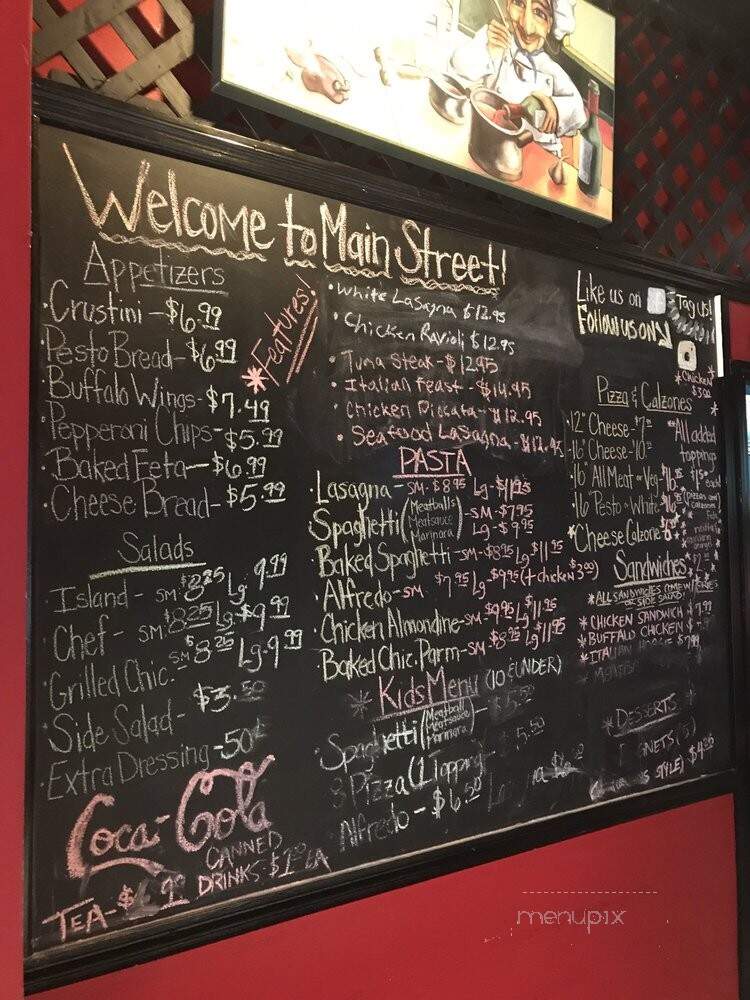 Welcome to Main Street!
Appetizers
·Crustini - $6.99
·Pesto Bread - $6.99
·Buffalo Wings - $7.49
·Pepperoni Chips - $5.99
·Baked Feta - $6.99
·Cheese Bread - $5.99
Salads
·Island - SM $8.25 Lg 9.99
·Chef - SM $8.25 Lg-$9.99
·Grilled Chic. SM $8.25 Lg-9.99
·Side Salad - $3.50
·Extra Dressing - 50¢
Coca-Cola
CANNED
DRINKS - $1.00 EA
TEA - $
*Features!
·White Lasagna $12.95
·Chicken Ravioli $12.95
·Tuna Steak - $12.95
·Italian Feast - $14.95
·Chicken Piccata - $12.95
·Seafood Lasagna - $12.95
PASTA
·Lasagna - SM-$8.95 Lg-$11.95
·Spaghetti (Meatballs Meatsauce Marinara) SM-$7.95 Lg-$9.95
·Baked Spaghetti - SM-$8.95 Lg $11.95
·Alfredo - SM $7.95 Lg-$9.95 (+ chicken $3.00)
·Chicken Almondine - SM $9.95 Lg $11.95
·Baked Chic. Parm - SM-$8.95 Lg $11.95
*Kids Menu (10 & UNDER)
·Spaghetti (Meatball Meatsauce Marinara) - $5.50
Pizza (1 topping) 5.50
·Alfredo - $6.50
Like us on
Tag us!
Follow us on
*Chicken
$3.00
Pizza & Calzones
·12" Cheese -
·16" Cheese -
·16" All Meat or Veg -
·16" Pesto or White
*Cheese Calzone
*All added
toppings
Sandwiches
*ALL SANDWICHES COME W/ FRIES
OR SIDE SALAD!
*CHICKEN SANDWICH $7.99
*BUFFALO CHICKEN $
*ITALIAN HOAGIE $7.99
*DESSERTS
STYLE) $4.95
menupix